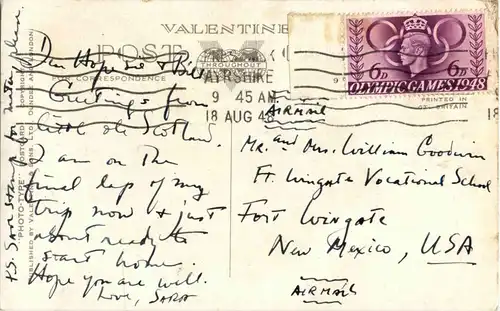 VALENTINE
POST
FOR CORRESPONDENCE
Dear Hope Sue & Bill,
Greetings from
little ole Scotland.
I am on the
final lap of my
trip now & just
about ready to
start home.
Hope you are well.
Love, SARA
P.S. Save stamp for me
"PHOTO-TYPE" POSTCARD
PUBLISHED BY VALENTINE & SONS, LTD., DUNDEE AND LONDON
THROUGHOUT
AYRSHIRE
9 45 AM
18 AUG 48
6D 6D
OLYMPIC GAMES 1948
PRINTED IN
GT. BRITAIN
AIRMAIL
Mr. and Mrs. William Goodwin
Ft. Wingate Vocational School
Fort Wingate
New Mexico, USA
AIRMAIL